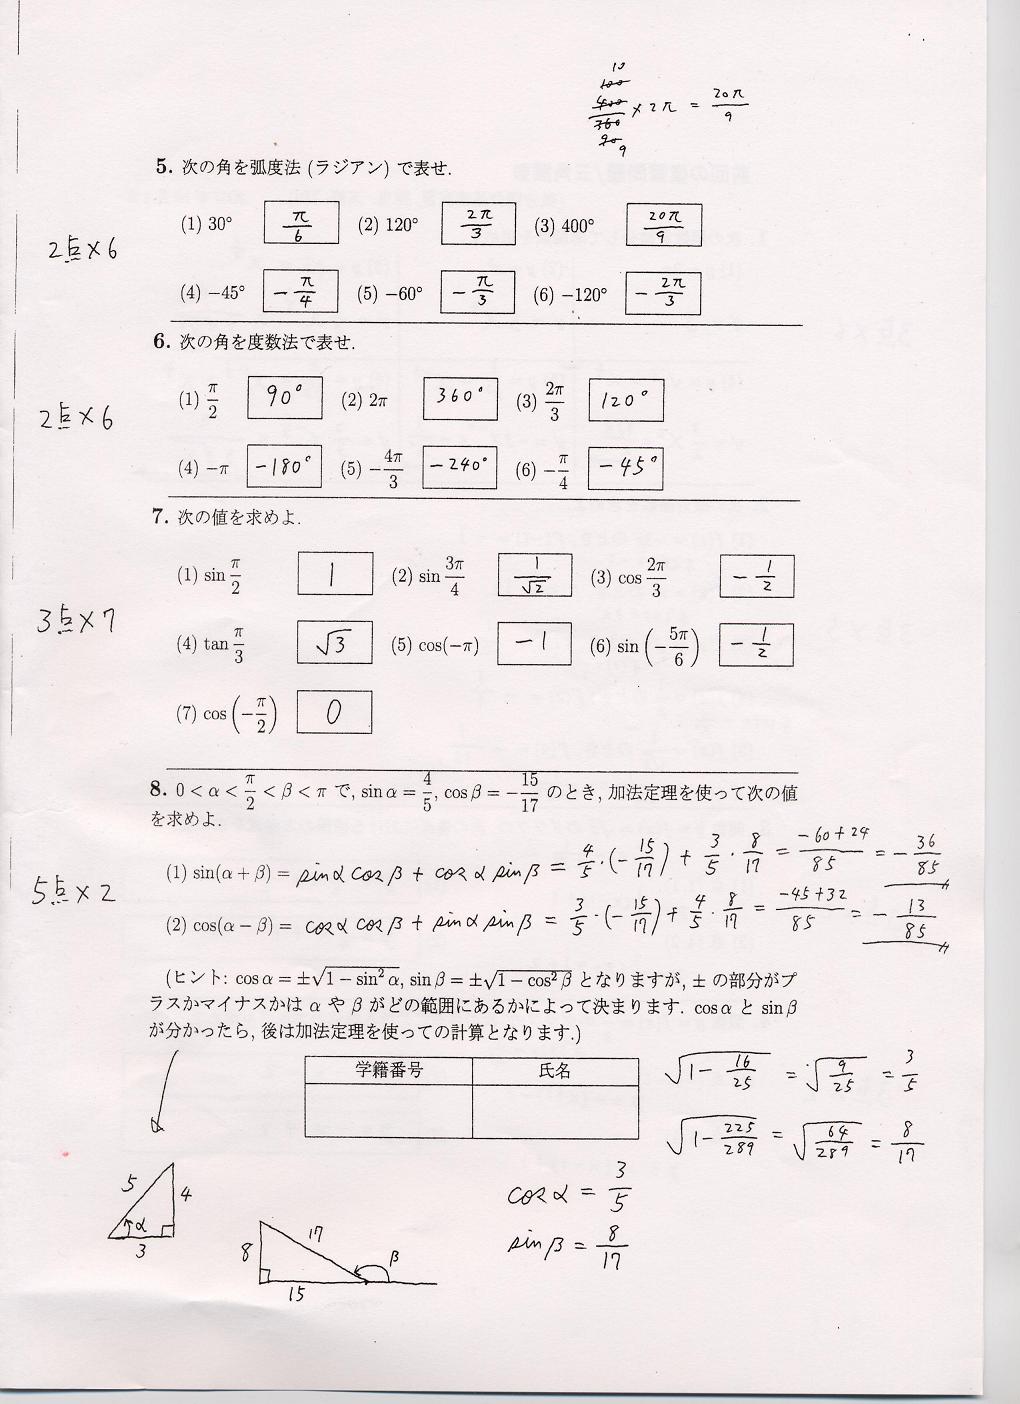 10
100
400/360 × 2π = 20π/9
90
9
5. 次の角を弧度法 (ラジアン) で表せ.
(1) 30° π/6 (2) 120° 2π/3 (3) 400° 20π/9
2点×6
(4) −45° −π/4 (5) −60° −π/3 (6) −120° −2π/3
6. 次の角を度数法で表せ.
(1) π/2 90° (2) 2π 360° (3) 2π/3 120°
2点×6
(4) −π −180° (5) −4π/3 −240° (6) −π/4 −45°
7. 次の値を求めよ.
(1) sin π/2 1 (2) sin 3π/4 1/√2 (3) cos 2π/3 −1/2
3点×7
(4) tan π/3 √3 (5) cos(−π) −1 (6) sin(−5π/6) −1/2
(7) cos(−π/2) 0
8. 0 < α < π/2 < β < π で, sin α = 4/5, cos β = −15/17 のとき, 加法定理を使って次の値
を求めよ.
(1) sin(α + β) = sinα cosβ + cosα sinβ = 4/5·(−15/17) + 3/5·8/17 = (−60+24)/85 = −36/85
5点×2
(2) cos(α − β) = cosα cosβ + sinα sinβ = 3/5·(−15/17) + 4/5·8/17 = (−45+32)/85 = −13/85
(ヒント: cos α = ±√(1 − sin² α), sin β = ±√(1 − cos² β) となりますが, ± の部分がプ
ラスかマイナスかは α や β がどの範囲にあるかによって決まります. cos α と sin β
が分かったら, 後は加法定理を使っての計算となります.)
学籍番号 氏名
√(1 − 16/25) = √(9/25) = 3/5
√(1 − 225/289) = √(64/289) = 8/17
5 4 α 3
cosα = 3/5
sinβ = 8/17
8 17 β 15